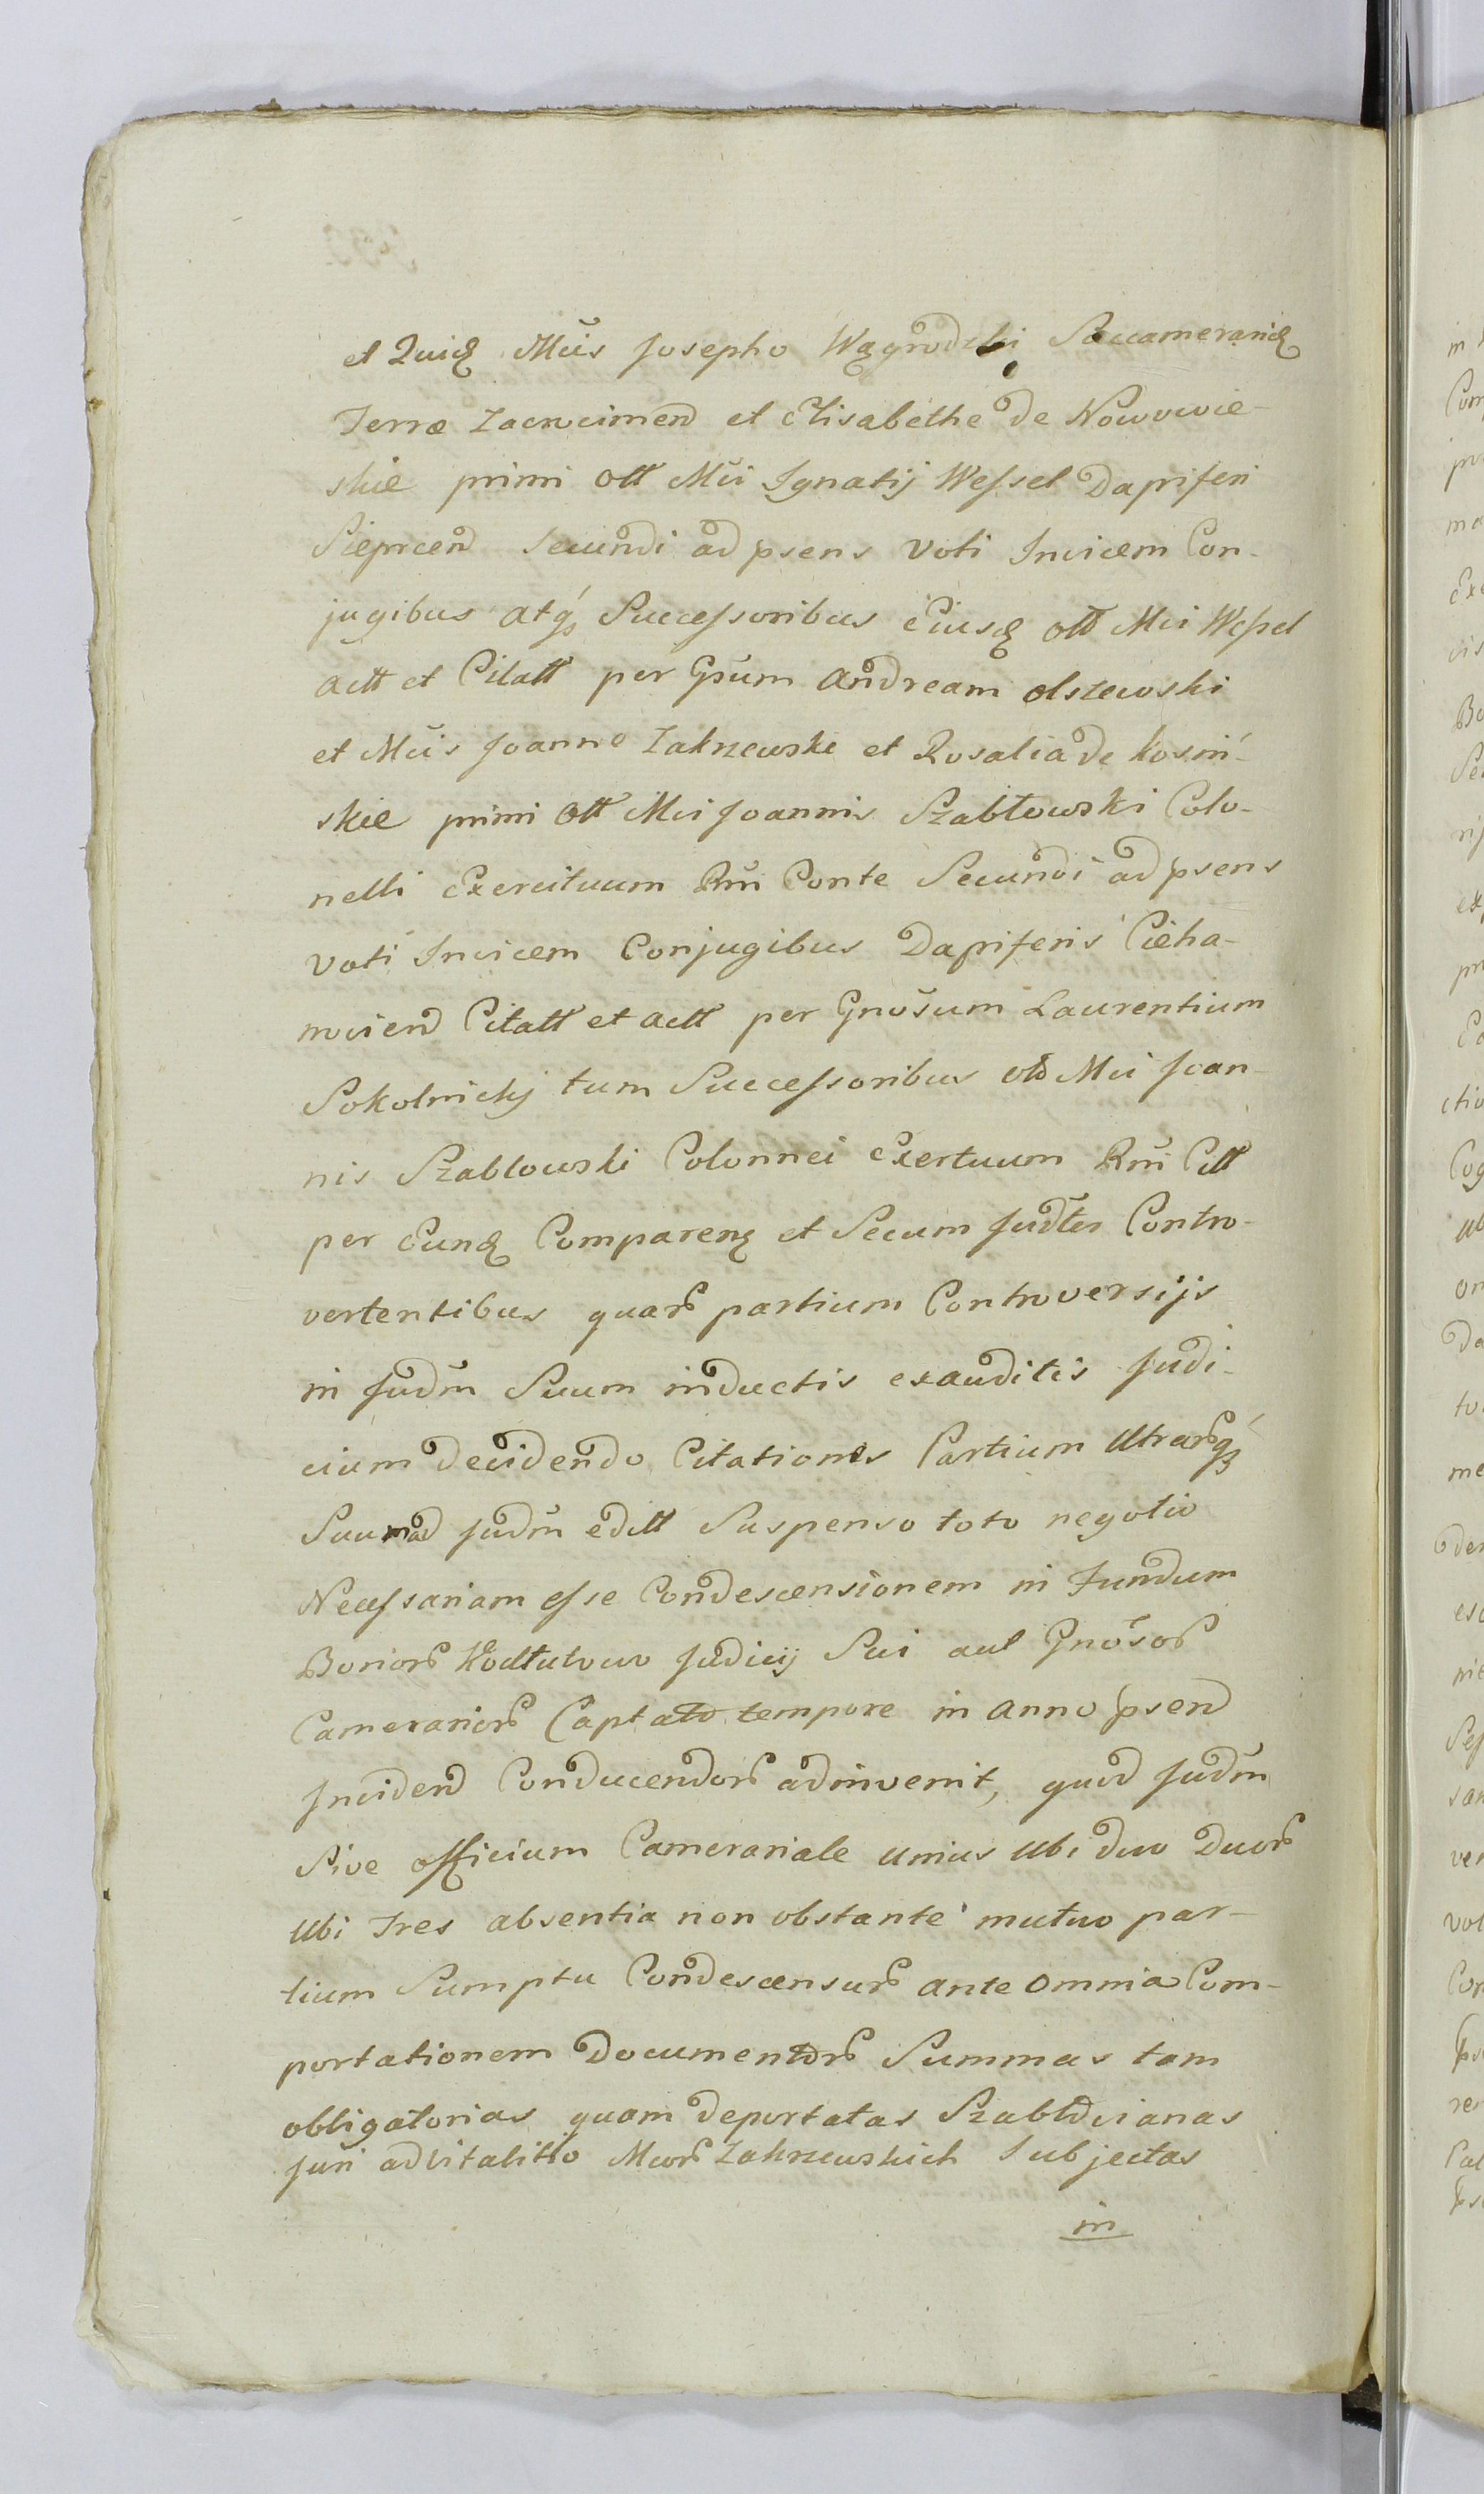 et Quidē Mcis Josepho Wągrodzki Succamerarid
Terræ Zacrocimen et Elisabethe de Nowowie-
skie primi Olt Mci Ignatij Wessel Dapiferi
Sieprcen Secundi ad psens Voti Invicem Con-
jugibus atq́ Successoribus Ejusd olt Mci Wessel
actt et Citatt per Gsum Andream Olszewski
et Mcis Joanne Zakrzewski et Rosalia de Kosiń-
skie primi Olt Mci Joannis Szabłowski Colo-
nelli Exercituum Rni Conte Secundi ad psens
Voti Invicem Conjugibus Dapiferis Cieha-
novien Citatt et actt per Gnosum Laurentium
Sokolnichj tum Successoribus olt Mci Joan-
nis Szablowski Colonnei Exertuum Rni Citt
per Eund Comparen et Secum Judter Contro-
vertentibus quar partium Controversijs
in Judm Suum inductis exauditis Judi-
cium decidendo Citationes Partium Utrarq́
Suum ad Judm editt Suspenso toto negotio
Necessariam esse Condescensionem in Fundum
Bonor Judicij Sui aut Gnosor
Camerarior Captato tempore in anno psen
Inciden Conducendor adinvenit, quod Judm
Sive officium Camerariale unius Ubi duo Duor
Ubi Tres absentia non obstante mutuo par-
tium Sumptu Condescensur ante omnia Com-
portationem Documentor Summas tam
obligatorias quam deportatas Szablovianas
Juri advitalitio Mcor Zakrzewskich Subjectas
in